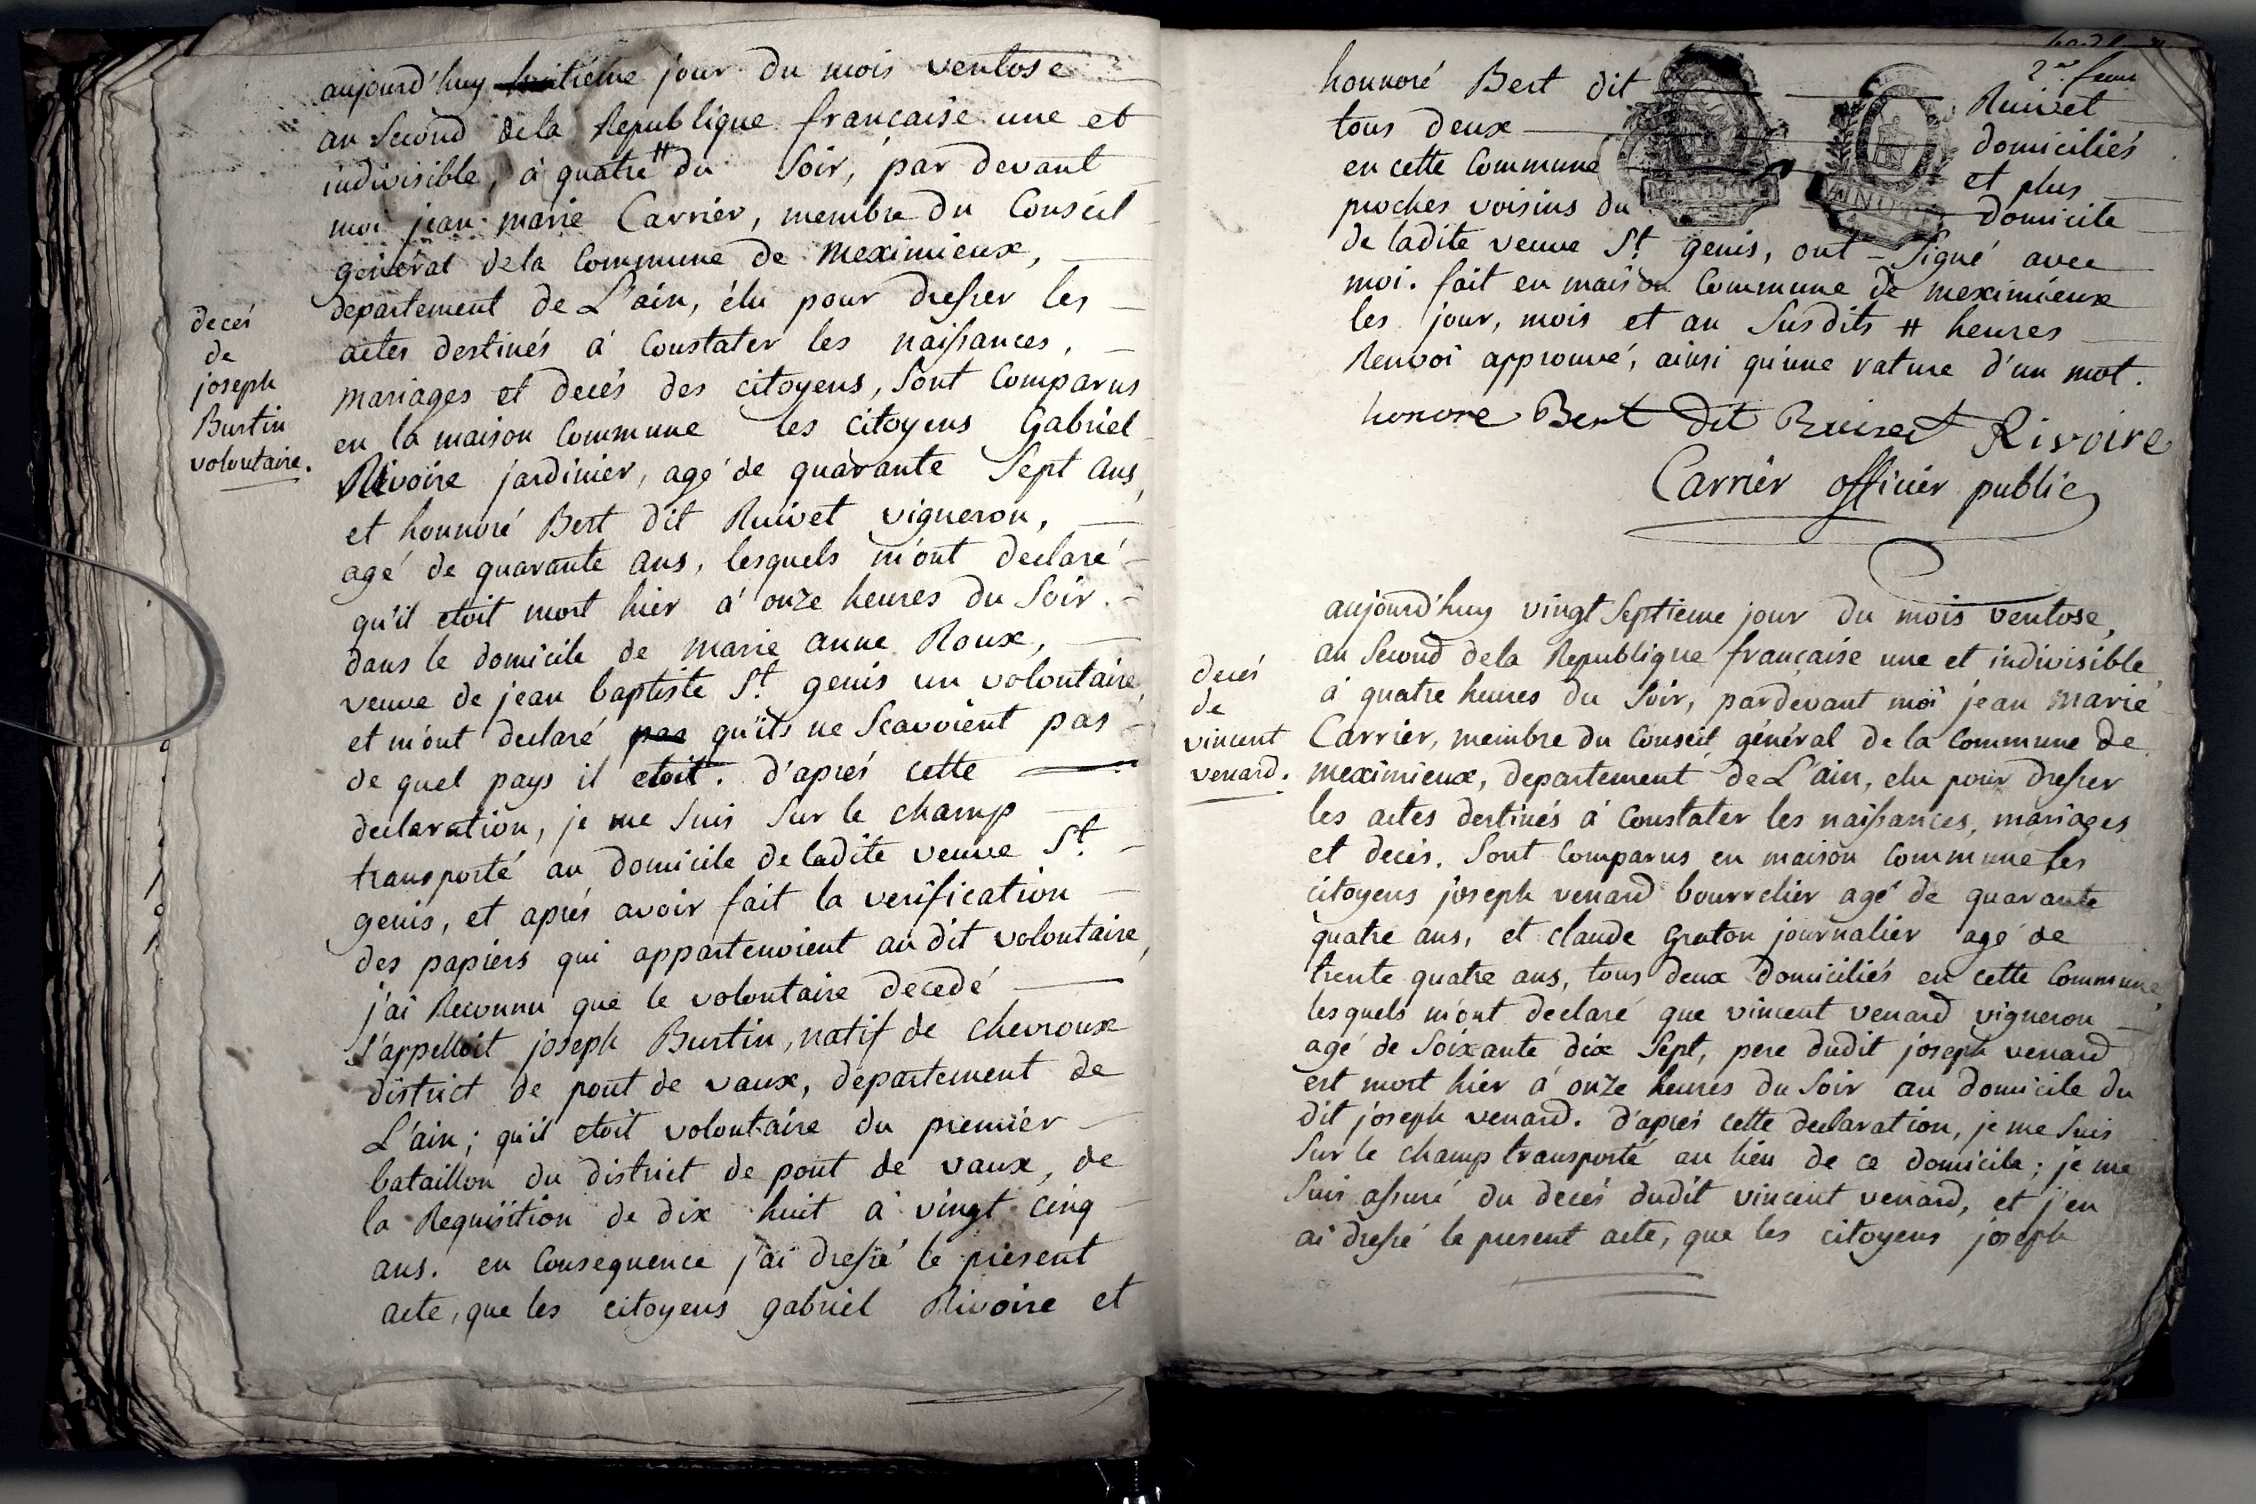 aujourd'huy huitieme jour du mois ventose
an second dela Republique française une et
indivisible, à quatre # du soir, par devant
moi jean marie Carrier, membre du Conseil
général dela Commune de meximieux,
departement de L'ain, élu pour dresser les
actes destinés à Constater les naissances,
mariages et decés des citoyens, sont Comparus
en la maison Commune les citoyens Gabriel
Rivoire jardinier, agé de quarante sept ans,
et honnoré Bert dit Ruivet vigneron,
agé de quarante ans, lesquels m'ont declaré
qu'il etoit mort hier à onze heures du soir
dans le domicile de marie anne Roux,
veuve de jean baptiste St. genis un volontaire,
et m'ont declaré pas qu'ils ne scavoient pas
de quel pays il etoit. d'aprés cette
declaration, je me suis sur le champ
transporté au domicile de ladite veuve St.
genis, et aprés avoir fait la verification
des papiers qui appartenoient au dit volontaire,
j'ai Reconnu que le volontaire decedé
s'appelloit joseph Burtin, natif de chevroux
district de pont de vaux, departement de
L'ain; qu'il etoit volontaire du premier
bataillon du district de pont de vaux, de
la Requisition de dix huit à vingt cinq
ans. en Consequence j'ai dressé le present
acte, que les citoyens gabriel Rivoire et
decés
de
joseph
Burtin
volontaire.
2.me feuil
honnoré Bert dit Ruivet
tous deux domiciliés
en cette Commune et plus
proches voisins du domicile
de ladite veuve St. genis, ont signé avec
moi. fait en maison Commune de meximieux
les jour, mois et an susdits # heures
Renvoi approuvé, ainsi qu'une rature d'un mot.
honoré Bert dit Ruivet Rivoire
Carrier officier public
aujourd'huy vingt septieme jour du mois ventose,
an second dela Republique française une et indivisible
à quatre heures du soir, pardevant moi jean marie
Carrier, membre du Conseil général de la Commune de
meximieux, departement de L'ain, elu pour dresser
les actes destinés à Constater les naissances, mariages
et decés. sont Comparus en maison Commune les
citoyens joseph venard bourrelier agé de quarante
quatre ans, et claude graton journalier agé de
trente quatre ans, tous deux domiciliés en cette Commune,
lesquels m'ont declaré que vincent venard vigneron
agé de soixante dix sept, pere dudit joseph venard
est mort hier à onze heures du soir au domicile du
dit joseph venard. d'aprés cette declaration, je me suis
sur le champ transporté au lieu de ce domicile; je me
suis assuré du decés dudit vincent venard, et j'en
ai dressé le present acte, que les citoyens joseph
decés
de
vincent
venard.